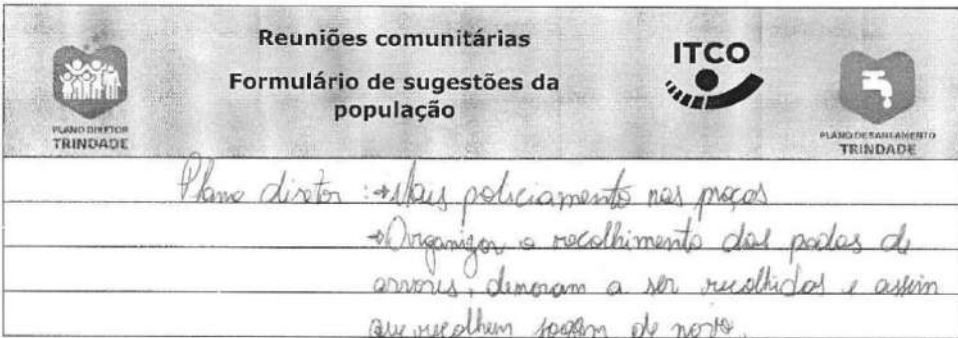 Reuniões comunitárias
Formulário de sugestões da
população
ITCO
PLANO DIRETOR
TRINDADE
PLANO DE SANEAMENTO
TRINDADE
Plano diretor : → Mais policiamento nas praças
→ Organizar o recolhimento das podas de
arvores, demoram a ser recolhidas e assim
que recolhem jogam de novo.